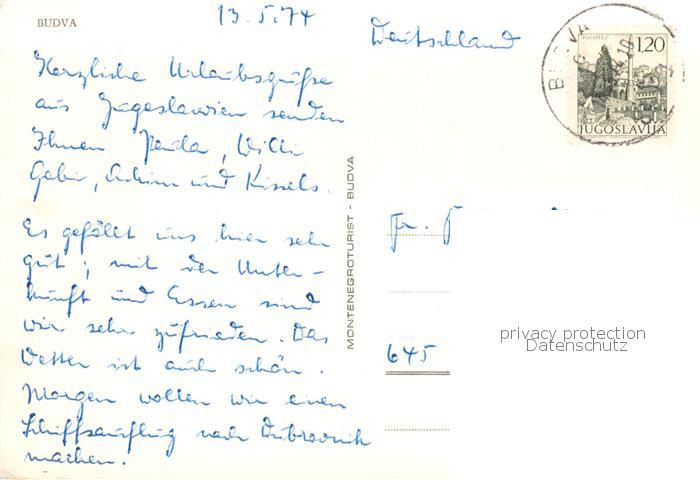 BUDVA
13.5.74
Deutschland
Herzliche Urlaubsgrüße
aus Jugoslawien senden
Ihnen Willi
Gabi, Achim und Kissels.
Es gefällt uns hier sehr
gut; mit der Unter-
kunft und Essen sind
wir sehr zufrieden. Das
Wetter ist auch schön.
Morgen wollen wir einen
Schiffsausflug nach Dubrovnik
machen.
MONTENEGROTURIST - BUDVA
POČITELJ
1,20
JUGOSLAVIJA
Fr.
645
privacy protection
Datenschutz